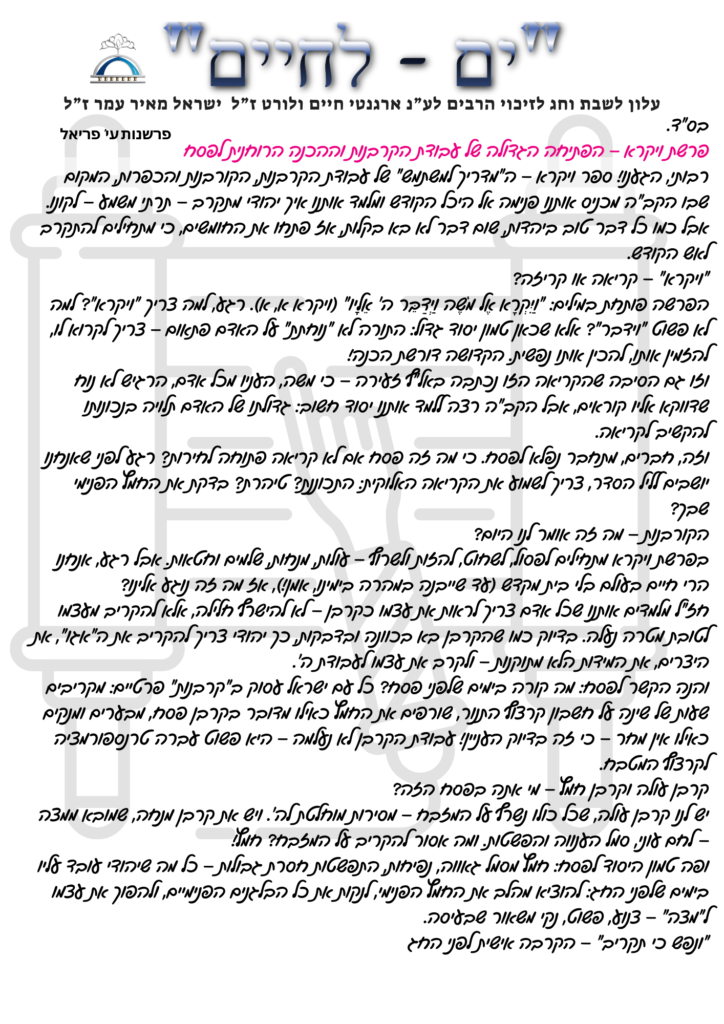 "ים - לחיים"
עלון לשבת וחג לזיכוי הרבים לע"נ ארגנטי חיים ולורט ז"ל ישראל מאיר עמר ז"ל
בס"ד.
פרשנות עי פריאל
פרשת ויקרא – הפתיחה הגדולה של עבודת הקרבנות וההכנה הרוחנית לפסח
רבותי, הגענו! ספר ויקרא – ה"מדריך למשתמש" של עבודת הקרבנות, הקורבנות והכפרות, המקום
שבו הקב"ה מכניס אותנו פנימה אל היכל הקודש ומלמד אותנו איך יהודי מתקרב – תרתי משמע – לקונו.
אבל כמו כל דבר טוב ביהדות, שום דבר לא בא בקלות, אז פתחו את החומשים, כי מתחילים להתקרב
לאש הקודש.
"ויקרא" – קריאה או קריזה?
הפרשה פותחת במילים: "וַיִּקְרָא אֶל מֹשֶׁה וַיְדַבֵּר ה' אֵלָיו" (ויקרא א, א). רגע, למה צריך "ויקרא"? למה
לא פשוט "וידבר"? אלא שכאן טמון יסוד גדול: התורה לא "נוחתת" על האדם פתאום – צריך לקרוא לו,
להזמין אותו, להכין אותו נפשית. הקדושה דורשת הכנה!
וזו גם הסיבה שהקריאה הזו נכתבה באל"ף זעירה – כי משה, העניו מכל אדם, הרגיש לא נוח
שדווקא אליו קוראים, אבל הקב"ה רצה ללמד אותנו יסוד חשוב: גדלותו של האדם תלויה בנכונותו
להקשיב לקריאה.
וזה, חברים, מתחבר נפלא לפסח. כי מה זה פסח אם לא קריאה פתוחה לחירות? רגע לפני שאנחנו
יושבים לליל הסדר, צריך לשמוע את הקריאה האלוקית: התכוננת? טיהרת? בדקת את החמץ הפנימי
שבך?
הקורבנות – מה זה אומר לנו היום?
בפרשת ויקרא מתחילים לפסול, לשחוט, להזות ולשרוף – עולות, מנחות, שלמים וחטאות. אבל רגע, אנחנו
הרי חיים בעולם בלי בית מקדש (עד שייבנה במהרה בימינו, אמן!), אז מה זה נוגע אלינו?
חז"ל מלמדים אותנו שכל אדם צריך לראות את עצמו כקרבן – לא להישרף חלילה, אלא להקריב מעצמו
לטובת מטרה נעלה. בדיוק כמו שהקרבן בא בכוונה ובדבקות, כך יהודי צריך להקריב את ה"אגו", את
היצרים, את המידות הלא מתוקנות – ולקרב את עצמו לעבודת ה'.
והנה הקשר לפסח: מה קורה בימים שלפני פסח? כל עם ישראל עסוק ב"קרבנות" פרטיים: מקריבים
שעות של שינה על חשבון קרצוף התנור, שורפים את החמץ כאילו מדובר בקרבן פסח, מבערים ומנקים
כאילו אין מחר – כי זה בדיוק העניין! עבודת הקרבן לא נעלמה – היא פשוט עברה טרנספורמציה
לקרצוף המטבח.
קרבן עולה וקרבן חמץ – מי אתה בפסח הזה?
יש לנו קרבן עולה, שכל כולו נשרף על המזבח – מסירות מוחלטת לה'. ויש את קרבן מנחה, שמובא ממצה
– לחם עוני, סמל הענווה והפשטות. ומה אסור להקריב על המזבח? חמץ!
ופה טמון היסוד לפסח: חמץ מסמל גאווה, נפיחות, התפשטות חסרת גבולות – כל מה שיהודי עובד עליו
בימים שלפני החג: להוציא מהלב את החמץ הפנימי, לנקות את כל הבלגנים הפנימיים, ולהפוך את עצמו
ל"מצה" – צנוע, פשוט, נקי משאור שבעיסה.
"ונפש כי תקריב" – הקרבה אישית לפני החג